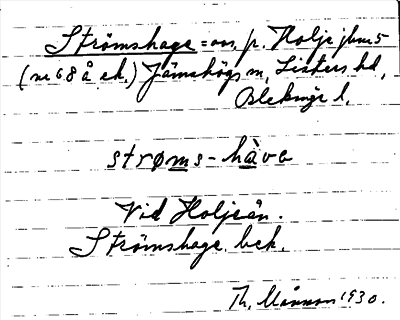 Strömshage = oos. p. Holje jbm 5
(nr 68 å ek.) Jämshögs sn, Listers hd,
Blekinge l.
strøms - hàva
Vid Holjeån.
Strömshage bek.
Th. Månsson 1930.